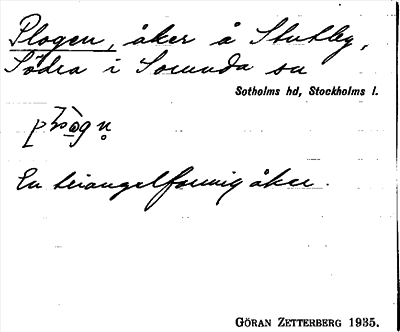 Plogen, åker å Stutby,
Södra i Sorunda sn
Sotholms hd, Stockholms l.
En triangelformig åker.
GÖRAN ZETTERBERG 1935.